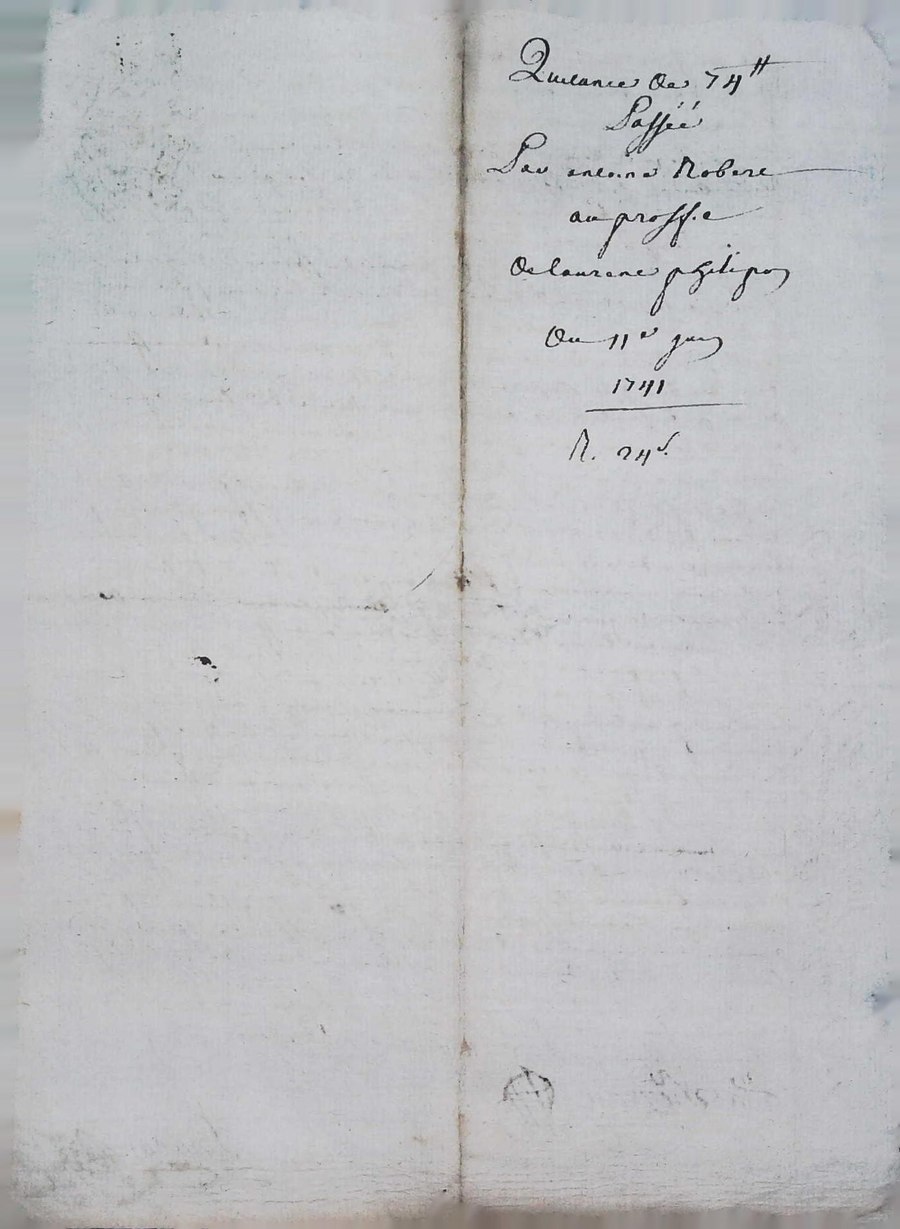 Quittance de 74 ₶
Passéé
Par antoine Robert
au proffit
de laurent philipon
Du 11e juin
1741
R. 24 s.